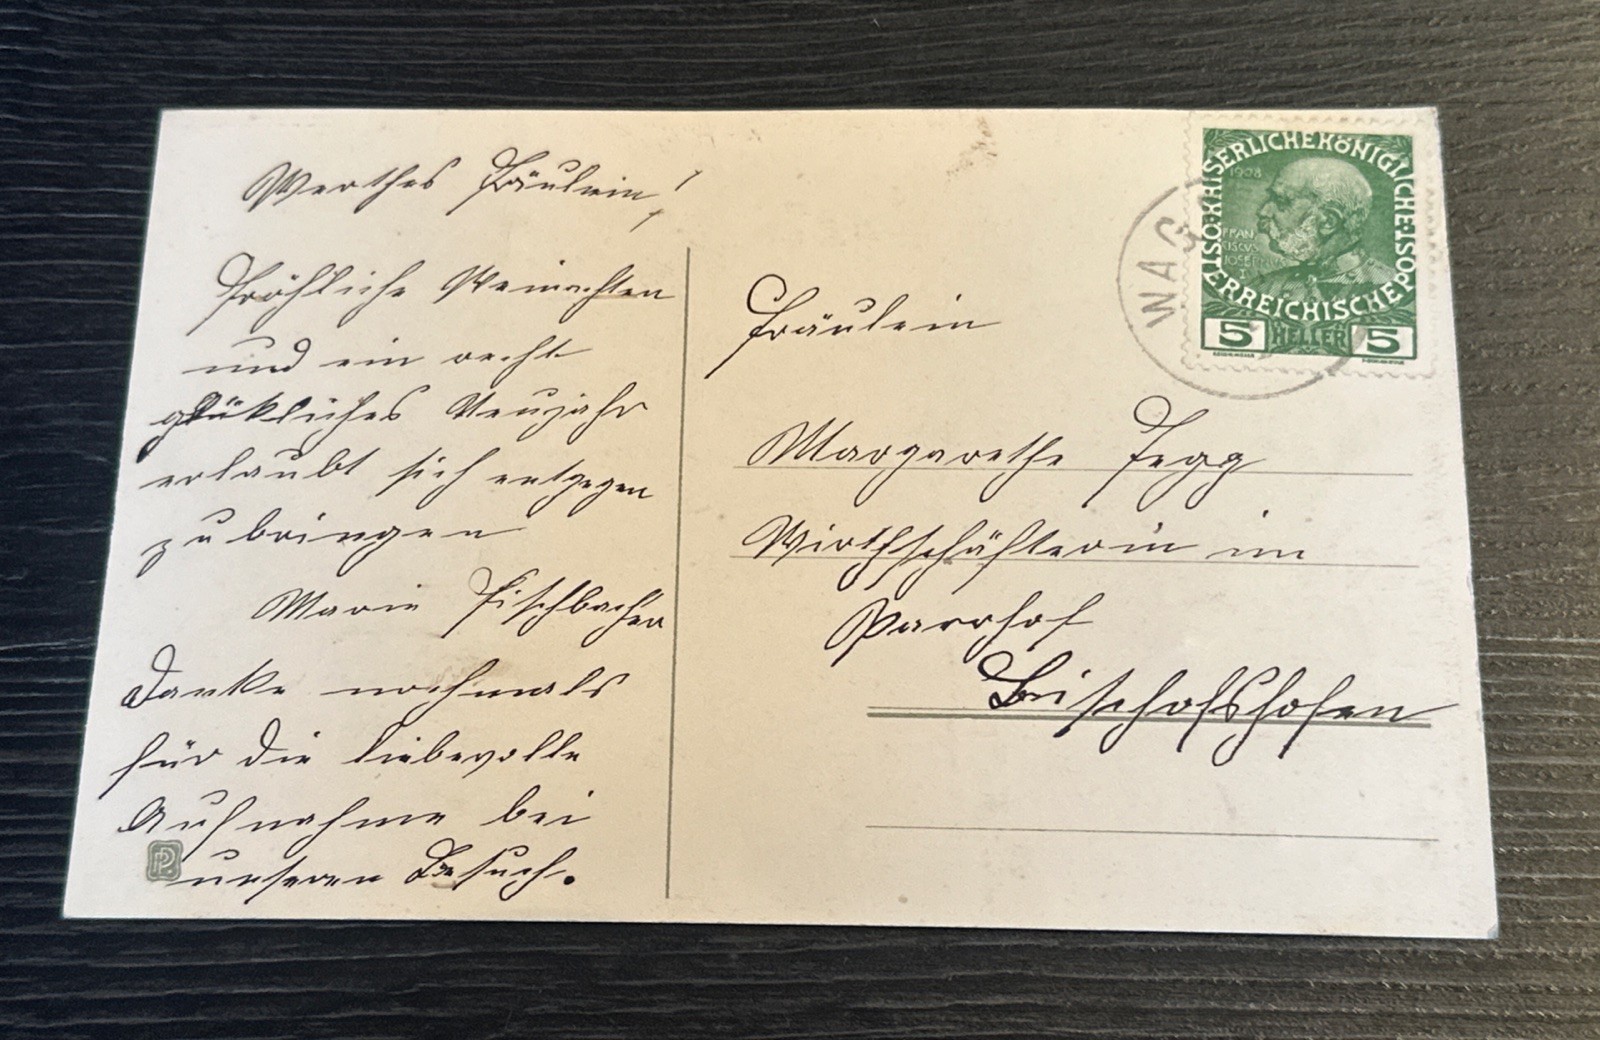 Werthes Fräulein!
Fröhliche Weinachten
und ein recht
glükliches Neujahr
erlaubt sich entgegen
zu bringen
Marie Fischbacher
Danke nochmals
für die liebevolle
Aufnahme bei
unseren Besuch.
P.
Fräulein
Margarethe Fegg
Wirthschäfterin im
Parrhof
Bischofshofen
WAG
KAISERLICHE KÖNIGLICHE
ÖSTERREICHISCHE POST
1908
FRAN
CISCVS
IOSEPHVS
I
5 HELLER 5